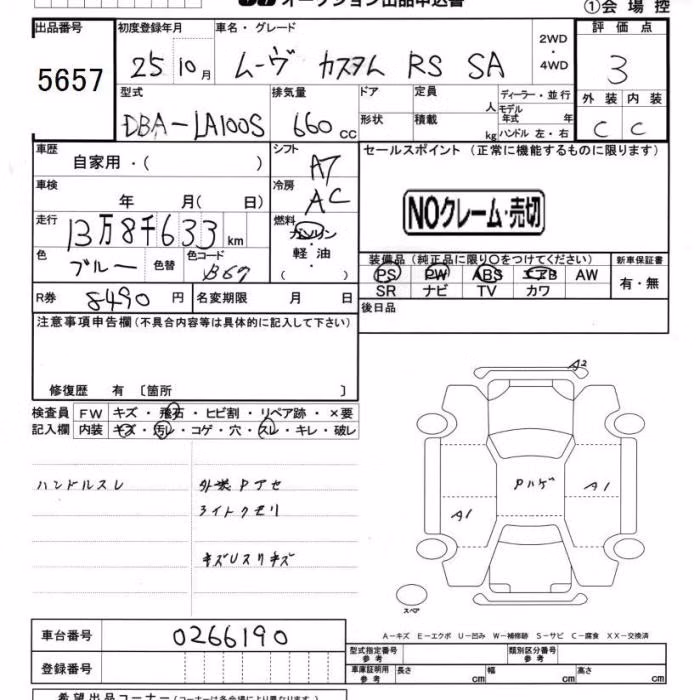 オークション出品申込書
①会場控
出品番号
5657
初度登録年月
25 10月
車名・グレード
ムーヴ カスタム RS SA
2WD・4WD
評価点
3
外装 内装
C C
型式
DBA-LA100S
排気量
660 cc
ドア
形状
定員 人
積載 kg
ディーラー・並行
モデル年式 年
ハンドル 左・右
車歴
自家用・( )
シフト
AT
セールスポイント (正常に機能するものに限ります)
NOクレーム・売切
車検
年 月( 日)
冷房
AC
走行
13万8千633 km
燃料
ガソリン・軽油
( )
色
ブルー
色替
色コード
B67
装備品(純正品に限り○をつけてください)
PS PW ABS エアB AW
SR ナビ TV カワ
新車保証書
有・無
R券 8490 円
名変期限 月 日
後日品
注意事項申告欄(不具合内容等は具体的に記入して下さい)
修復歴 有 〔箇所 〕
検査員記入欄
FW キズ・飛石・ヒビ割・リペア跡・×要
内装 キズ・汚レ・コゲ・穴・スレ・キレ・破レ
ハンドルスレ
外装Pアセ
ライトクモリ
キズUスリキズ
A2
Pハゲ
A1
A1
スペア
A-キズ E-エクボ U-凹み W-補修跡 S-サビ C-腐食 XX-交換済
車台番号
0266190
登録番号
型式指定番号 参考
類別区分番号 参考
車庫証明用 参考
長さ cm 幅 cm 高さ cm
希望出品コーナー(コーナーは各会場により異なります)